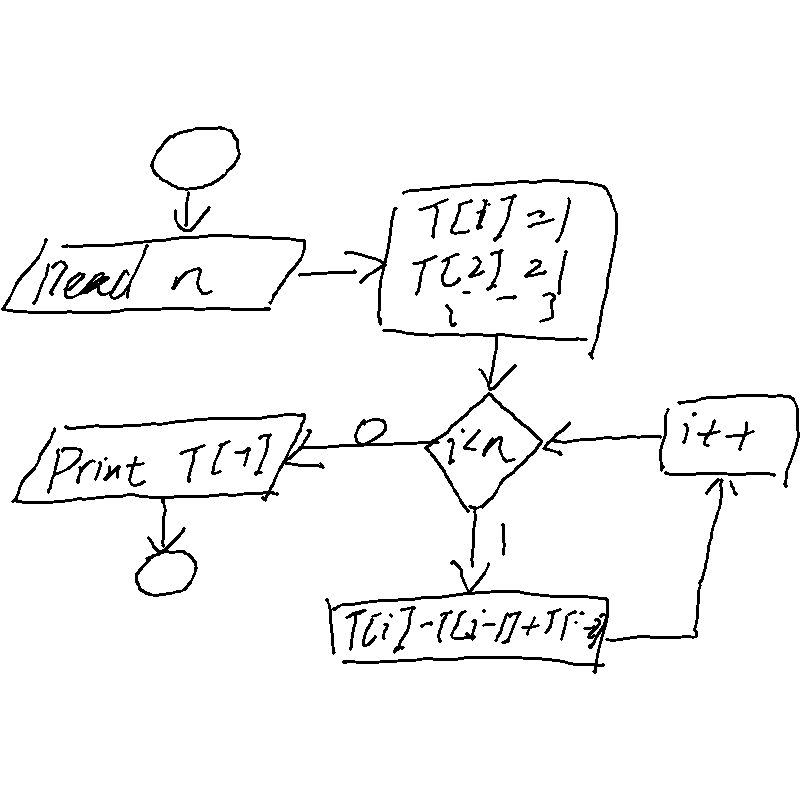 Read n
T[1]=1
T[2]=1
i = 3
i<n
0
1
i++
Print T[-1]
T[i]=T[i-1]+T[i-2]